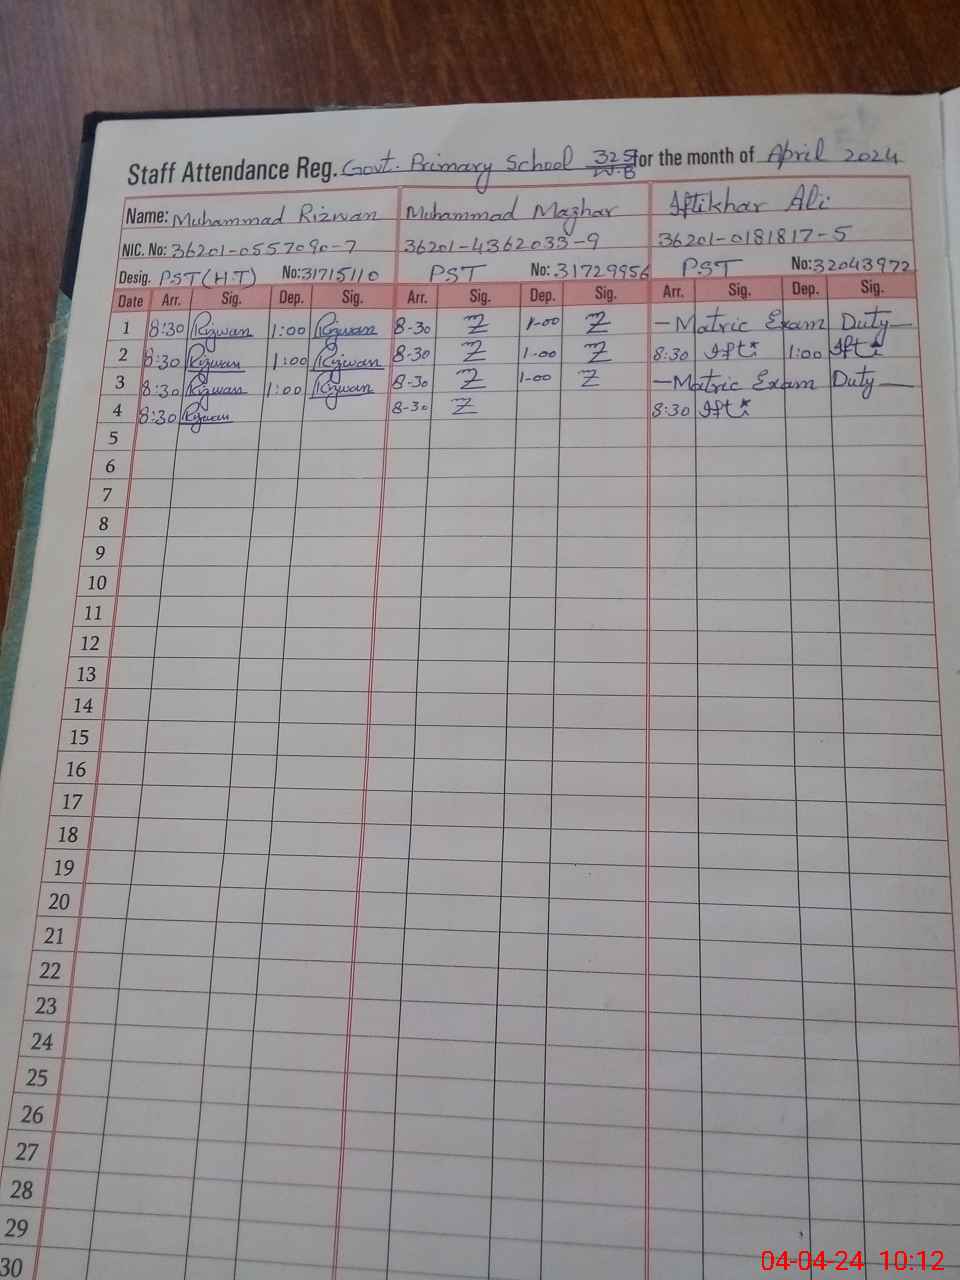 Staff Attendance Reg. Govt. Primary School 325/W.B for the month of April 2024
Name: Muhammad Rizwan Muhammad Mazhar Iftikhar Ali
NIC. No: 36201-0557090-7 36201-4362033-9 36201-0181817-5
Desig. PST(H.T) No: 31715110 PST No: 31729956 PST No: 32043972
Date Arr. Sig. Dep. Sig. Arr. Sig. Dep. Sig. Arr. Sig. Dep. Sig.
1 8:30 Rizwan 1:00 Rizwan 8-30 1-00 — Matric Exam Duty —
2 8:30 Rizwan 1:00 Rizwan 8-30 1-00 8:30 Ifti 1:00 Ifti
3 8:30 Rizwan 1:00 Rizwan 8-30 1-00 — Matric Exam Duty —
4 8:30 Rizwan 8-30 8:30 Ifti
5
6
7
8
9
10
11
12
13
14
15
16
17
18
19
20
21
22
23
24
25
26
27
28
29
30
04-04-24 10:12